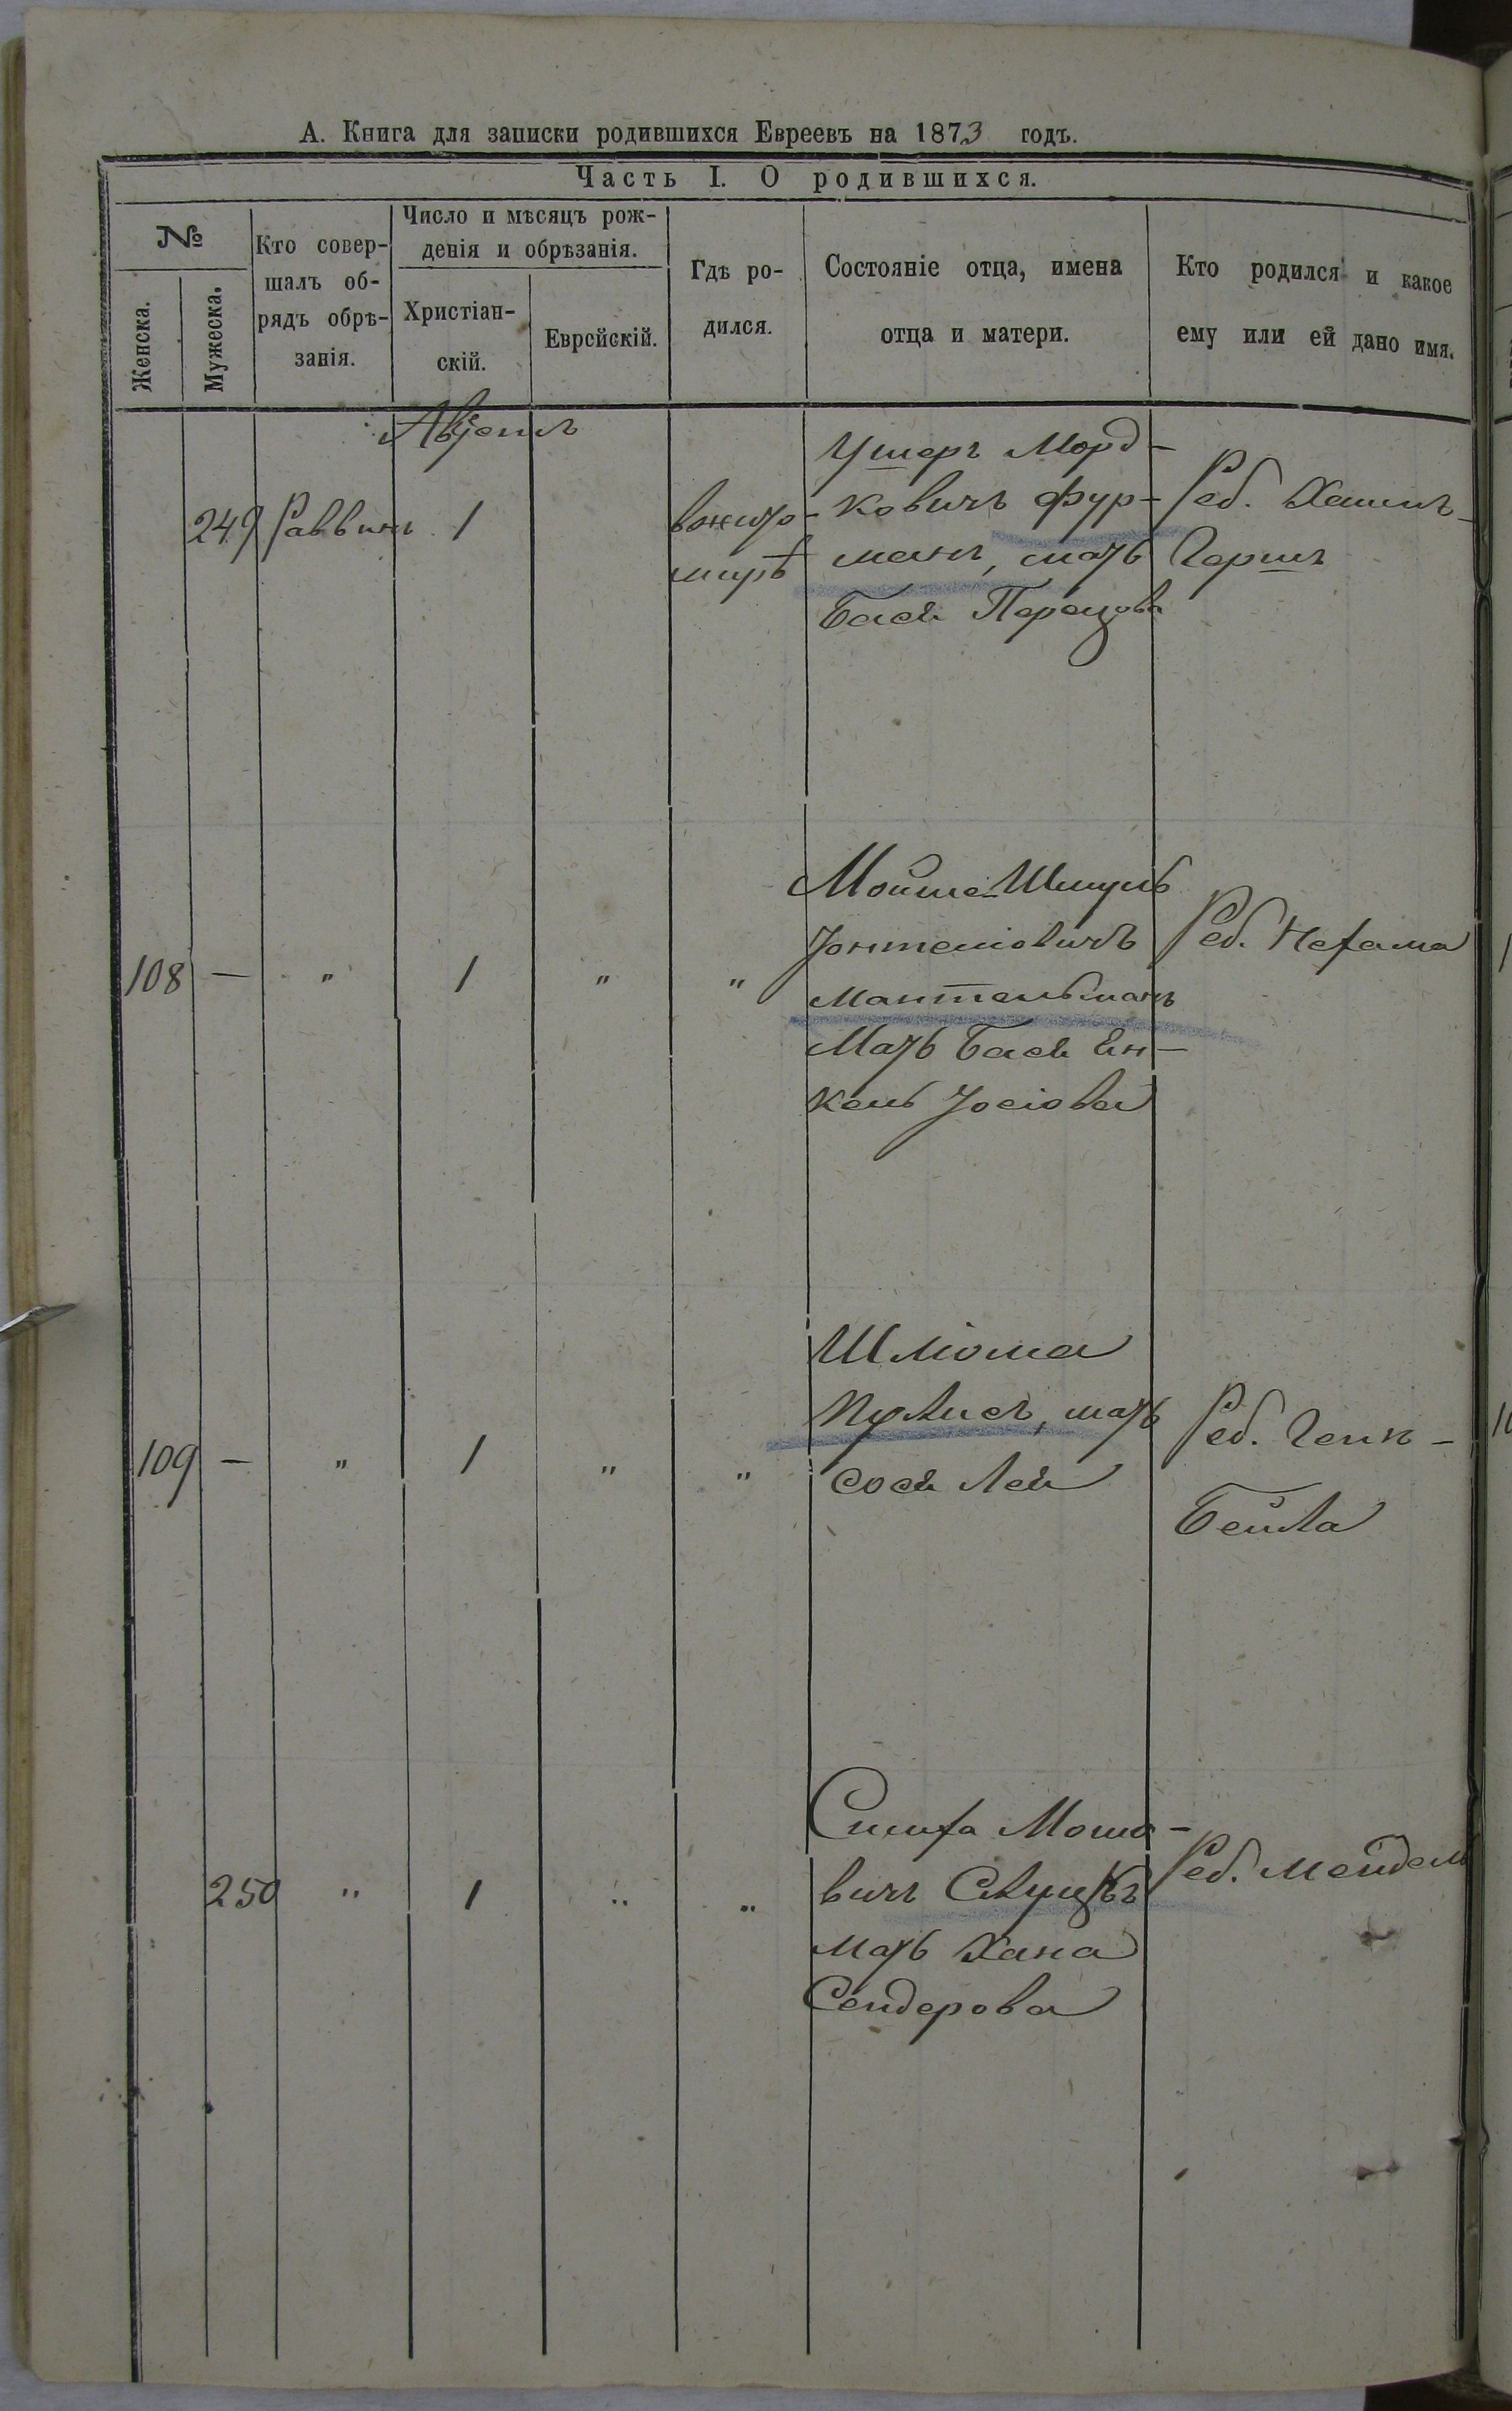 А. Книга для записки родившихся Евреевъ на 1873 годъ.
Часть I. О родившихся.
№
Женска.
Мужеска.
Кто совер-
шалъ об-
рядъ обрѣ-
занія.
Число и мѣсяцъ рож-
денія и обрѣзанія.
Христіан-
скій.
Еврейскій.
Гдѣ ро-
дился.
Состояніе отца, имена
отца и матери.
Кто родился и какое
ему или ей дано имя.
249 Раввинъ 1
вжито-
мирѣ
Ушеръ Морд-
ковичъ Фур-
манъ, мать
Бася Перецова
Реб. Хаимъ-
Гершъ
108 — " 1 " "
Мойше-Шмуль
Мантельманъ
Мать Бася Ен-
кель Іосіова
Реб. Нехама
109 — " 1 " "
Шліома
мать
Сося Лея
Реб.
Бейла
250 " 1 " "
Симха Мошо-
вичъ Слуцкъ
мать Хана
Сендерова
Реб. Мендель